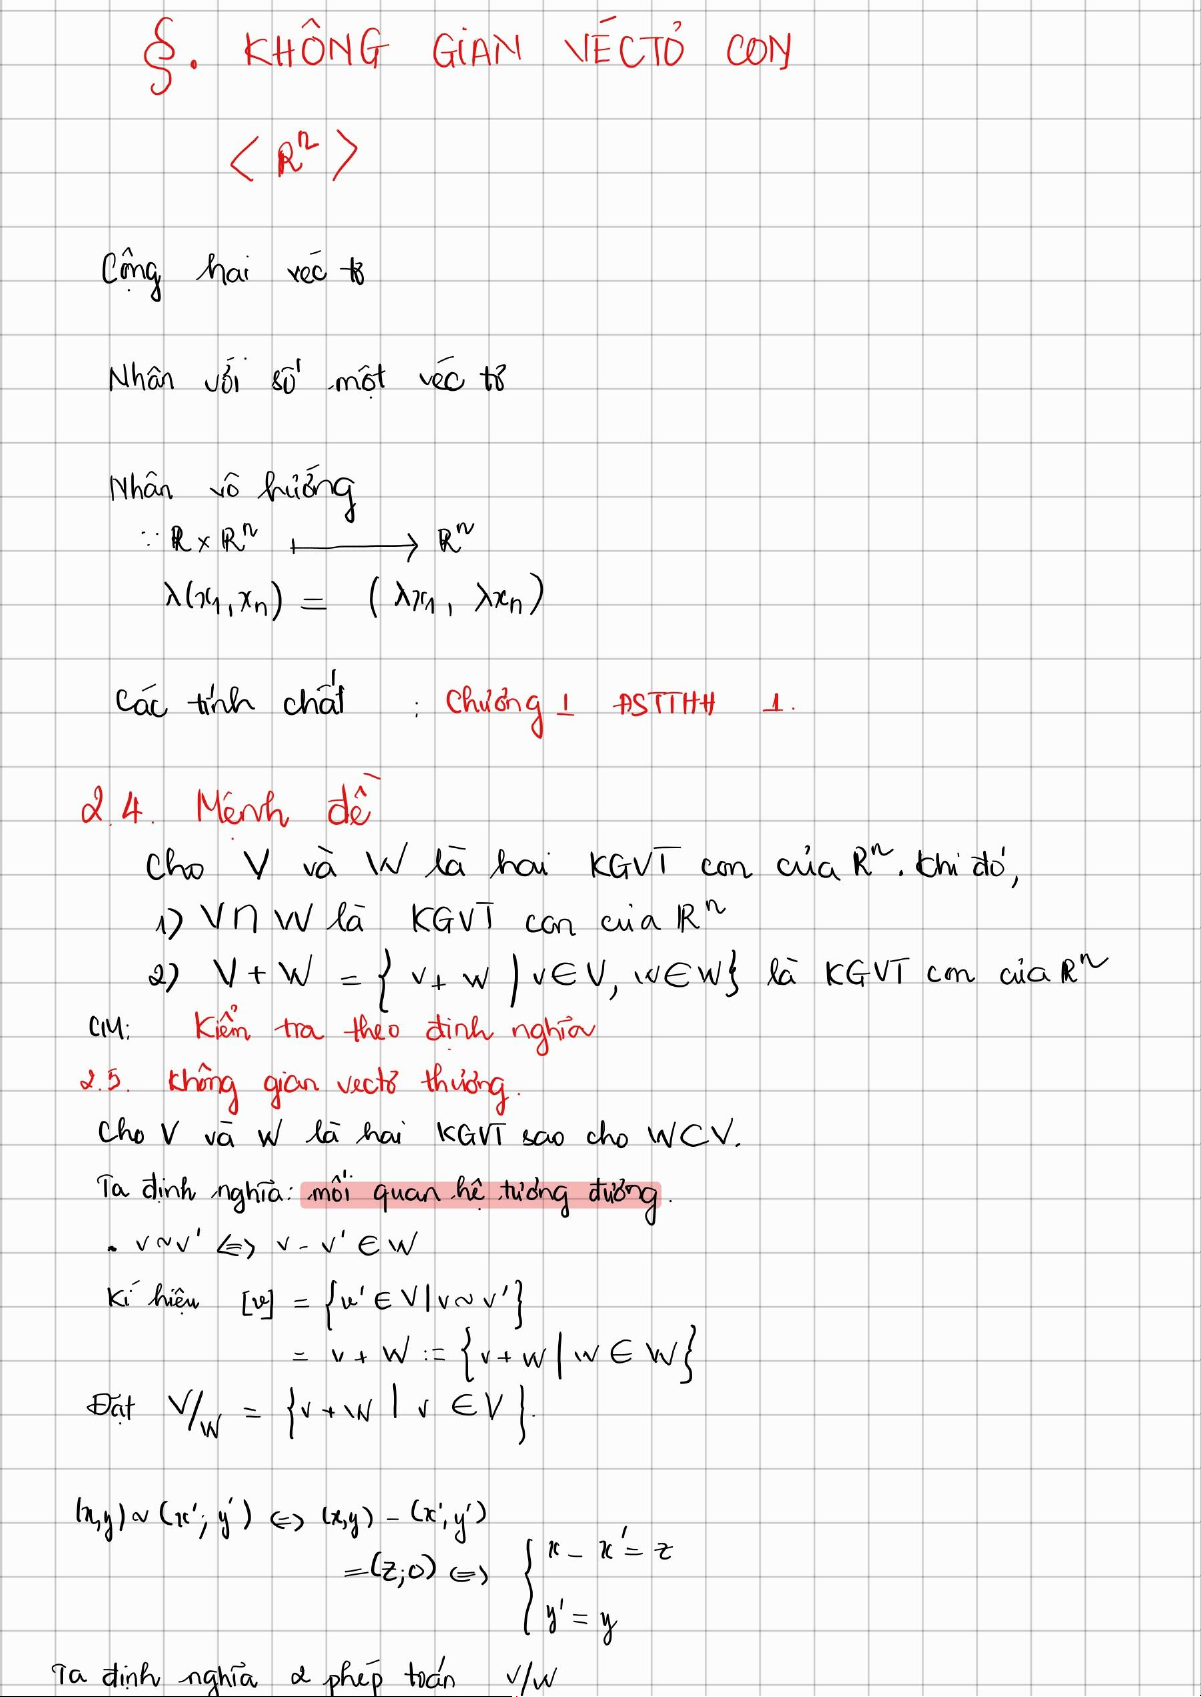 §. KHÔNG GIAN VÉCTƠ CON
< ℝⁿ >
Cộng hai véc tơ
Nhân với số một véc tơ
Nhân vô hướng
∵ ℝ × ℝⁿ ⟼ ℝⁿ
λ(x₁, xₙ) = (λx₁, λxₙ)
Các tính chất : Chương 1 ĐSTTHH 1.
2.4. Mệnh đề
Cho V và W là hai KGVT con của ℝⁿ. Khi đó,
1) V∩W là KGVT con của ℝⁿ
2) V + W = {v + w | v∈V, w∈W} là KGVT con của ℝⁿ
CM: Kiểm tra theo định nghĩa
2.5. Không gian vectơ thương.
Cho V và W là hai KGVT sao cho W⊂V.
Ta định nghĩa: mối quan hệ tương đương.
• v~v' ⇔ v - v' ∈ W
Kí hiệu [v] = {v' ∈ V | v ~ v'}
= v + W := {v + w | w ∈ W}
Đặt V/W = {v + W | v ∈ V}.
(x,y) ~ (x'; y') ⇔ (x,y) - (x'; y')
= (z; 0) ⇔ { x - x' = z
y' = y
Ta định nghĩa 2 phép toán V/W